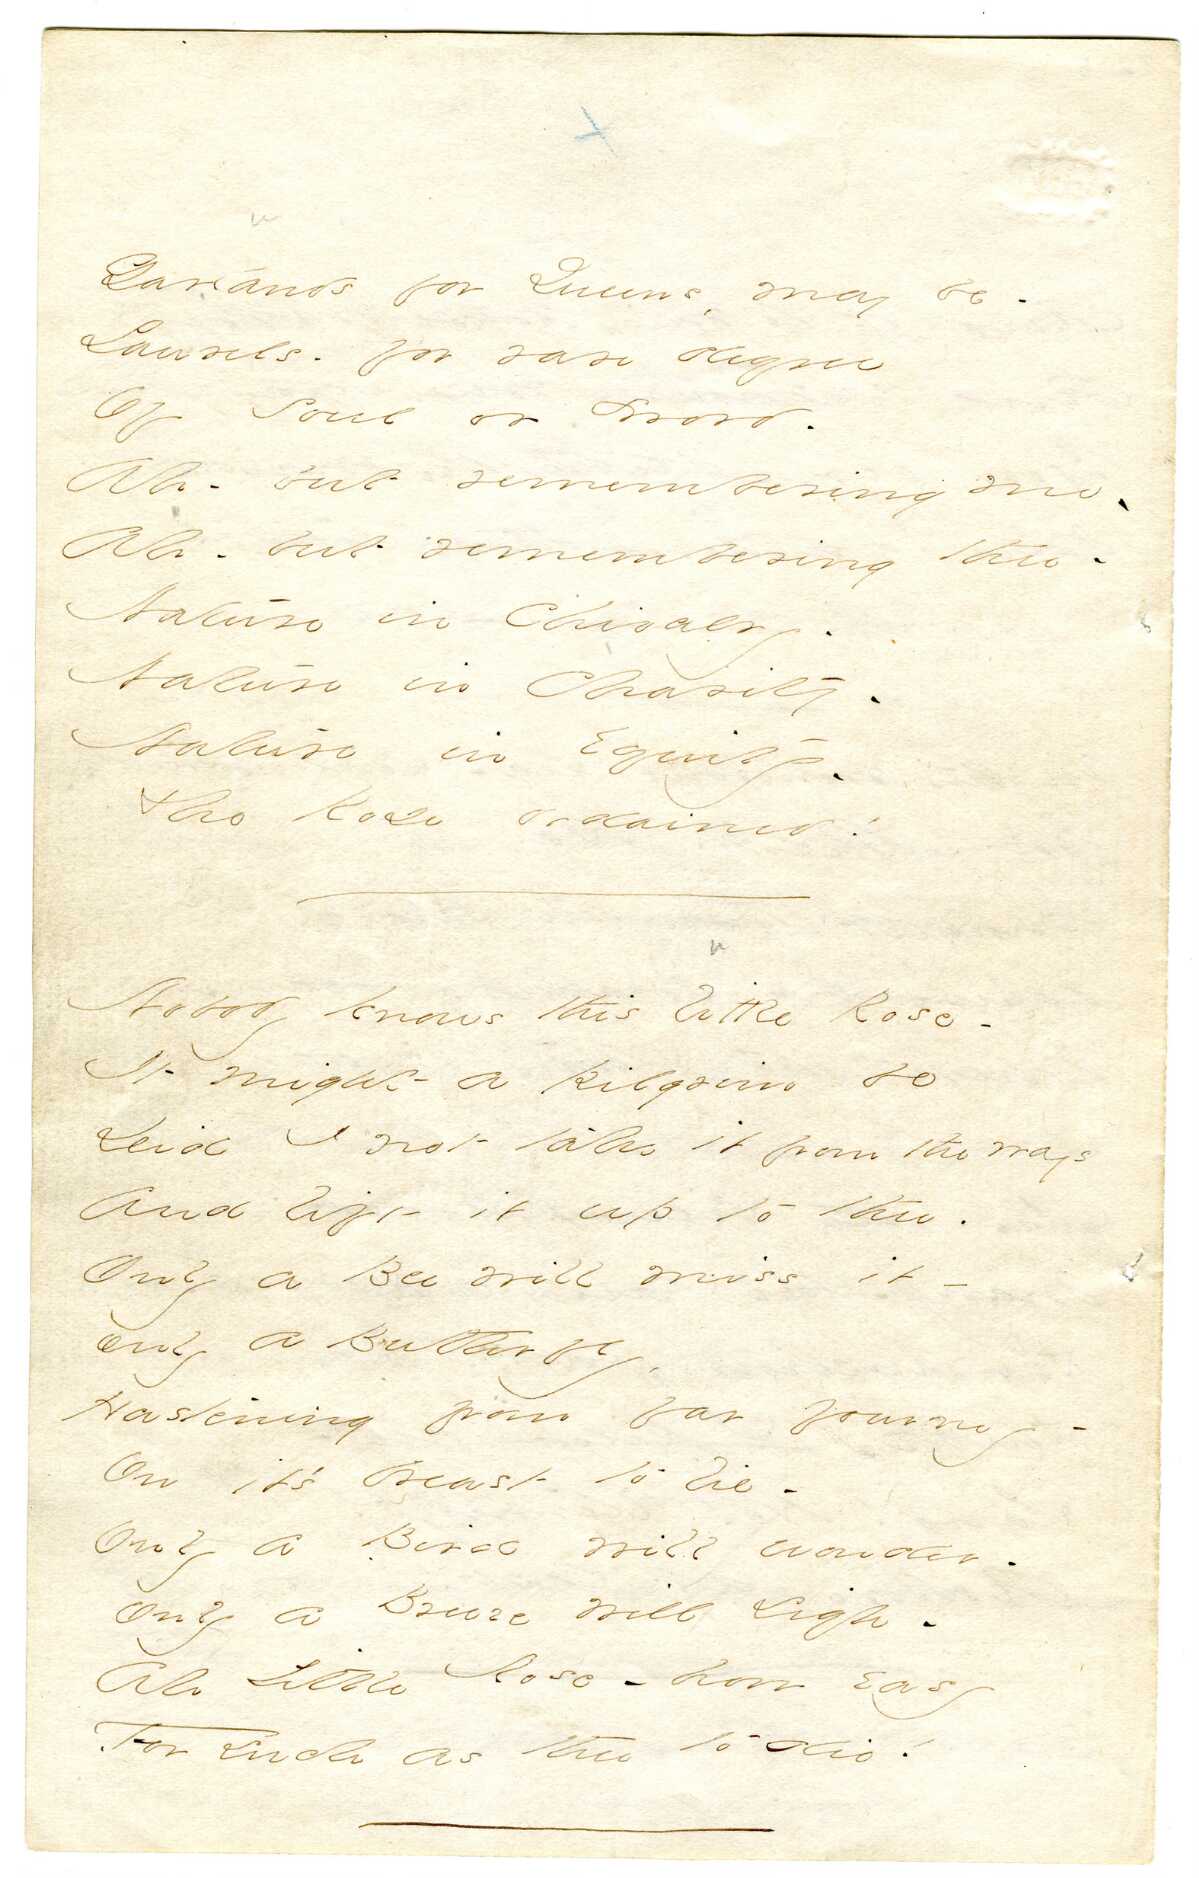 Garlands for Queens, may be -
Laurels - for rare degree
Of Soul or Sword -
Ah - but remembering me -
Ah - but remembering thee -
Nature in Chivalry -
Nature in Charity -
Nature in Equity -
The Rose ordained!
Nobody knows this little Rose -
It might a pilgrim be
Did I not take it from the ways
And lift it up to thee.
Only a Bee will miss it -
Only a Butterfly,
Hastening from far journey -
On it's breast to lie -
Only a Bird will wonder -
Only a Breeze will Sigh -
Ah Little Rose - how Easy
For Such as thee to die!